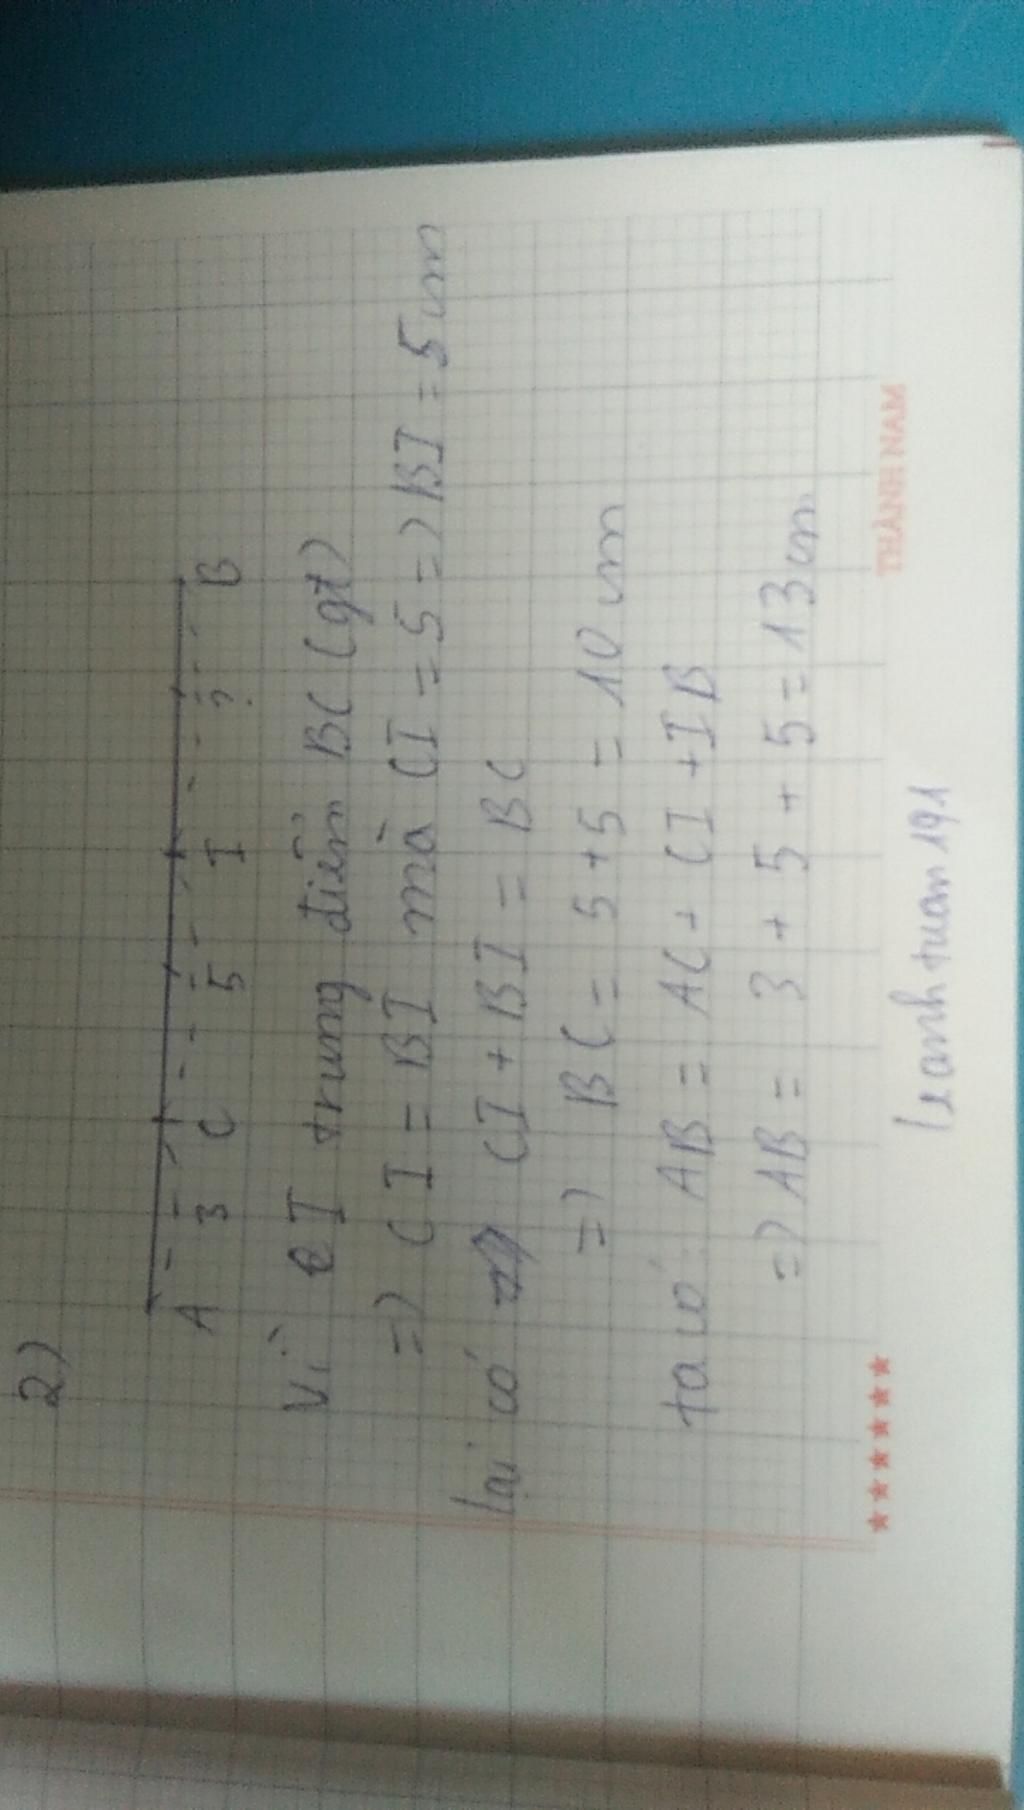 2)
A 3 C 5 I ? B
Vì I trung điểm BC (gt)
=) CI = BI mà CI = 5 =) BI = 5 cm
lại có CI + BI = BC
=) BC = 5 + 5 = 10 cm
ta có: AB = AC + CI + IB
=) AB = 3 + 5 + 5 = 13 cm
leanhtuan191
★★★★★★★ THÀNH NAM